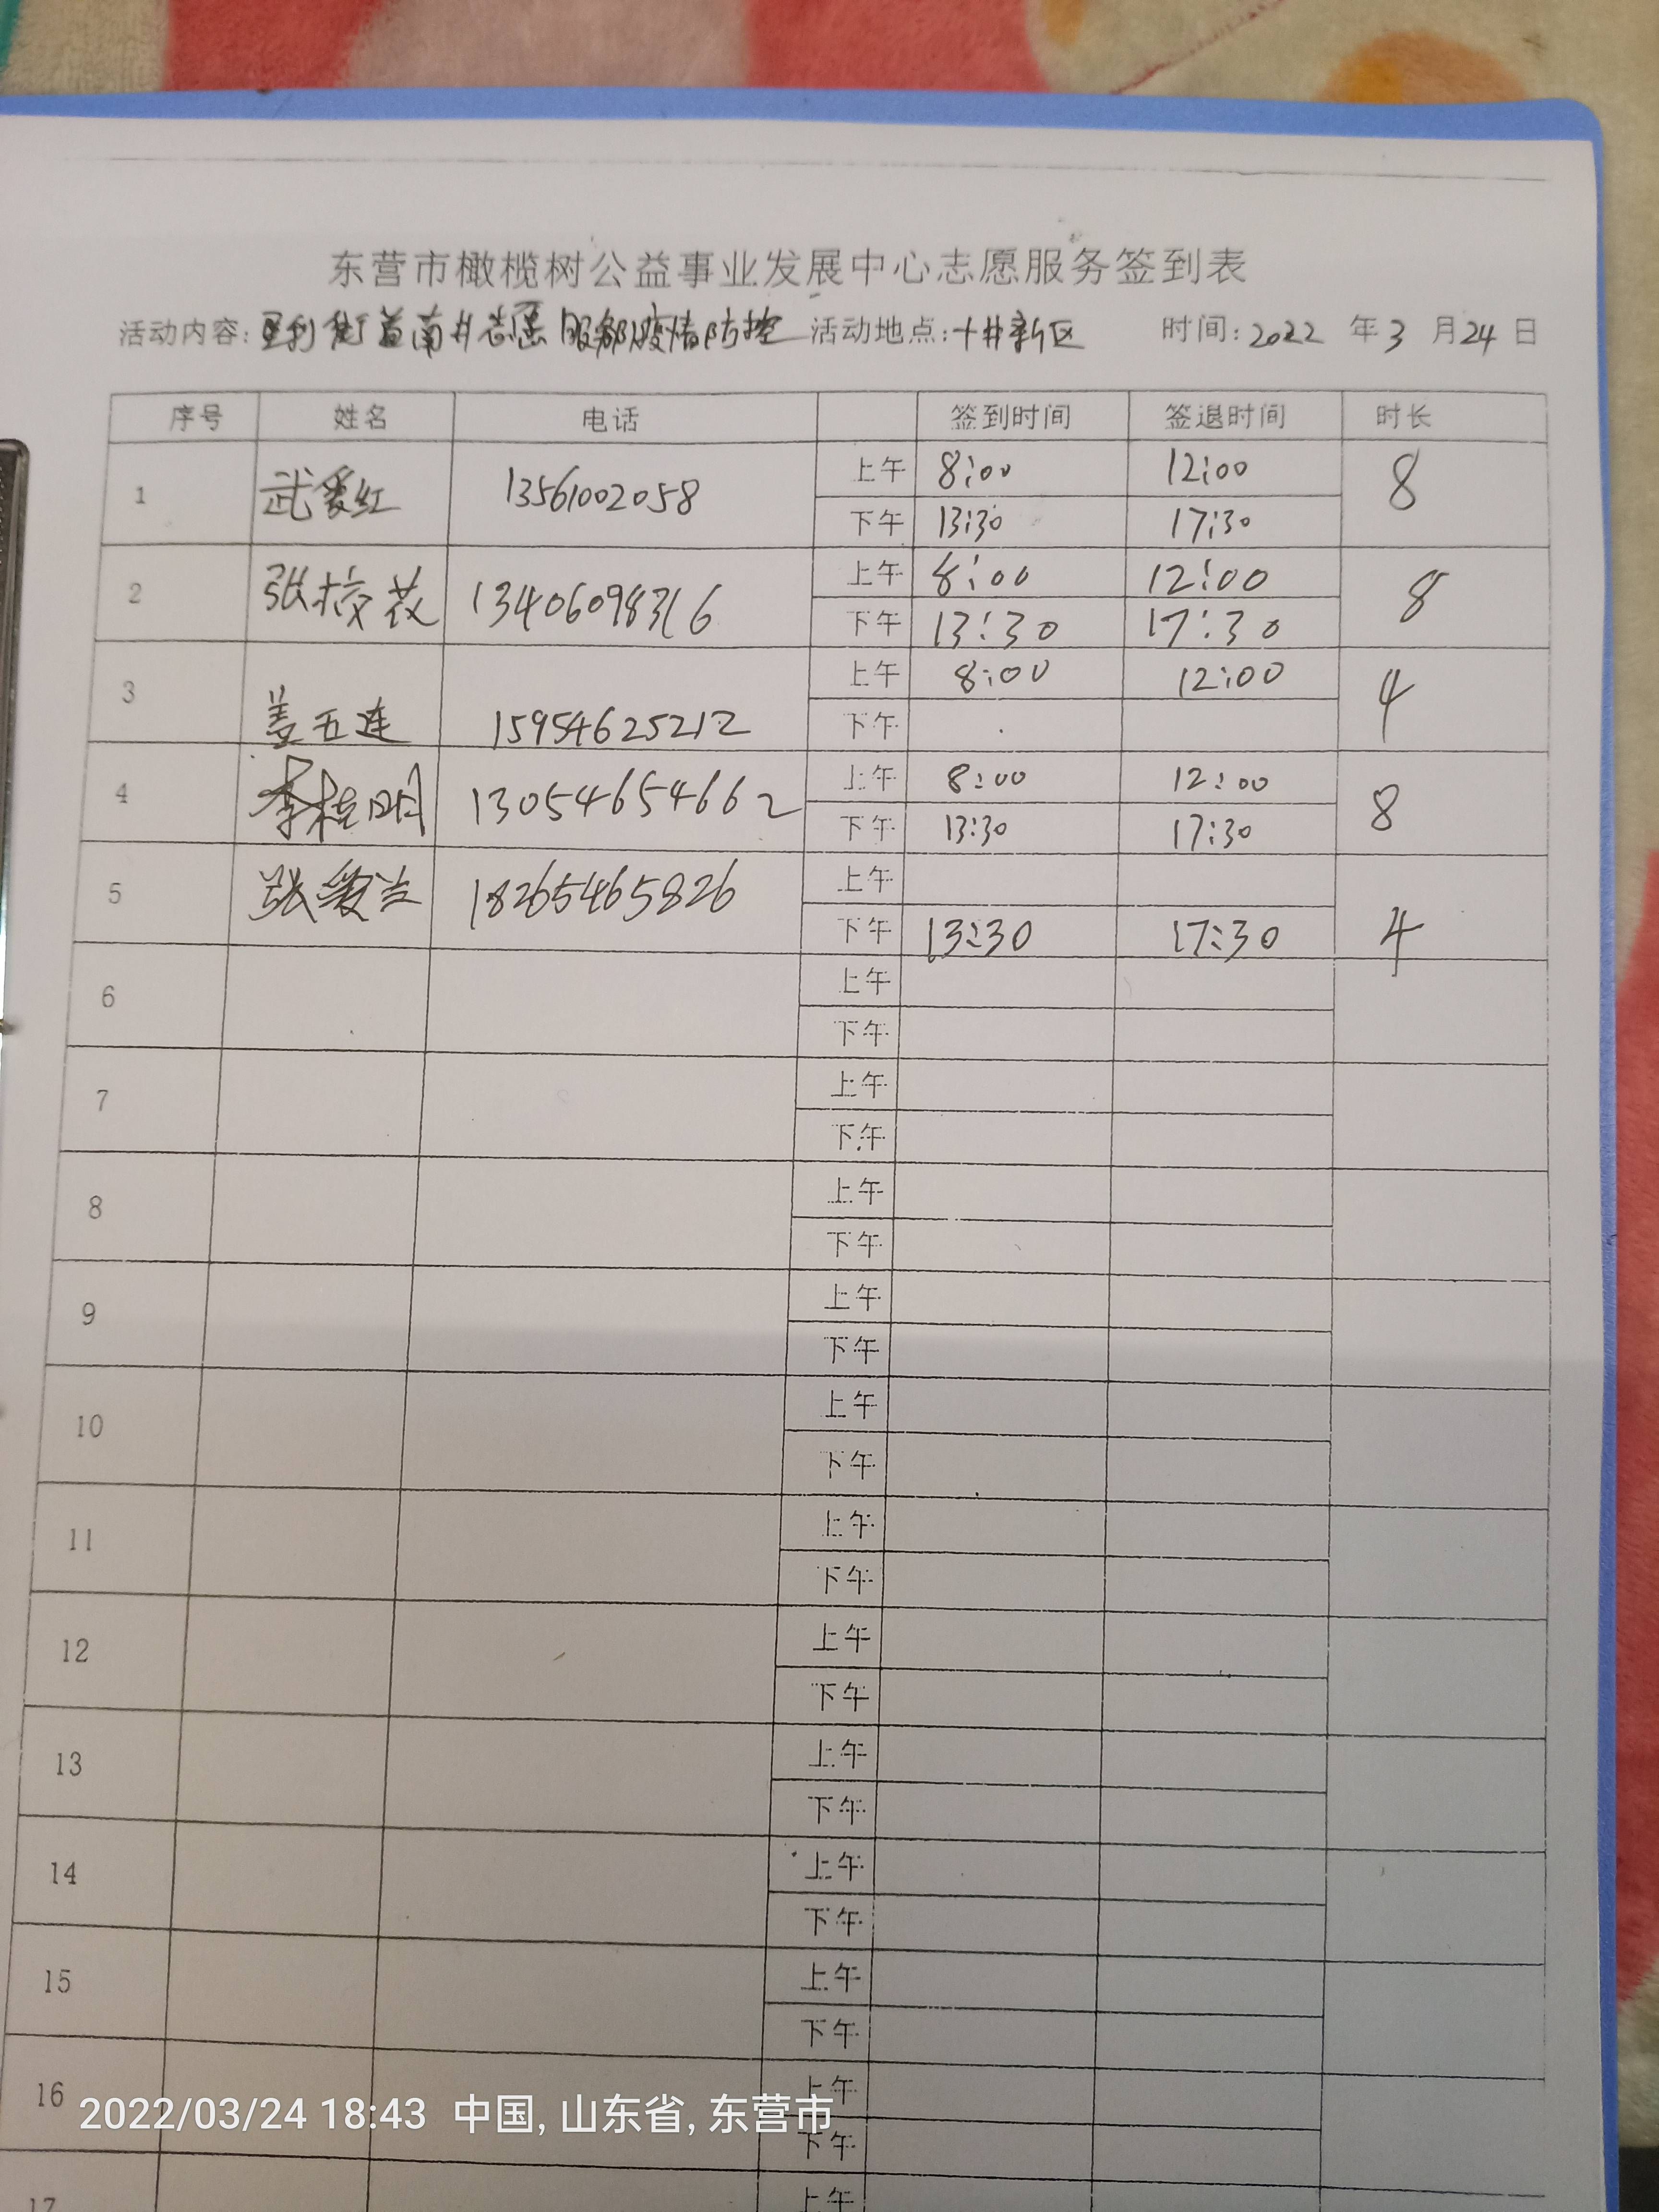 东营市橄榄树公益事业发展中心志愿服务签到表
活动内容: 南井志愿服务疫情防控 活动地点: 十井新区 时间: 2022 年 3 月 24 日
序号 姓名 电话 签到时间 签退时间 时长
1 武爱红 13561002058 上午 8:00 12:00 8
下午 13:30 17:30
2 张校花 13406098316 上午 8:00 12:00 8
下午 13:30 17:30
3 姜五连 15954625212 上午 8:00 12:00 4
下午
4 李桂明 13054654662 上午 8:00 12:00 8
下午 13:30 17:30
5 张爱兰 18265465826 上午
下午 13:30 17:30 4
6 上午
下午
7 上午
下午
8 上午
下午
9 上午
下午
10 上午
下午
11 上午
下午
12 上午
下午
13 上午
下午
14 上午
下午
15 上午
下午
16 上午
下午
17 上午
2022/03/24 18:43 中国, 山东省, 东营市